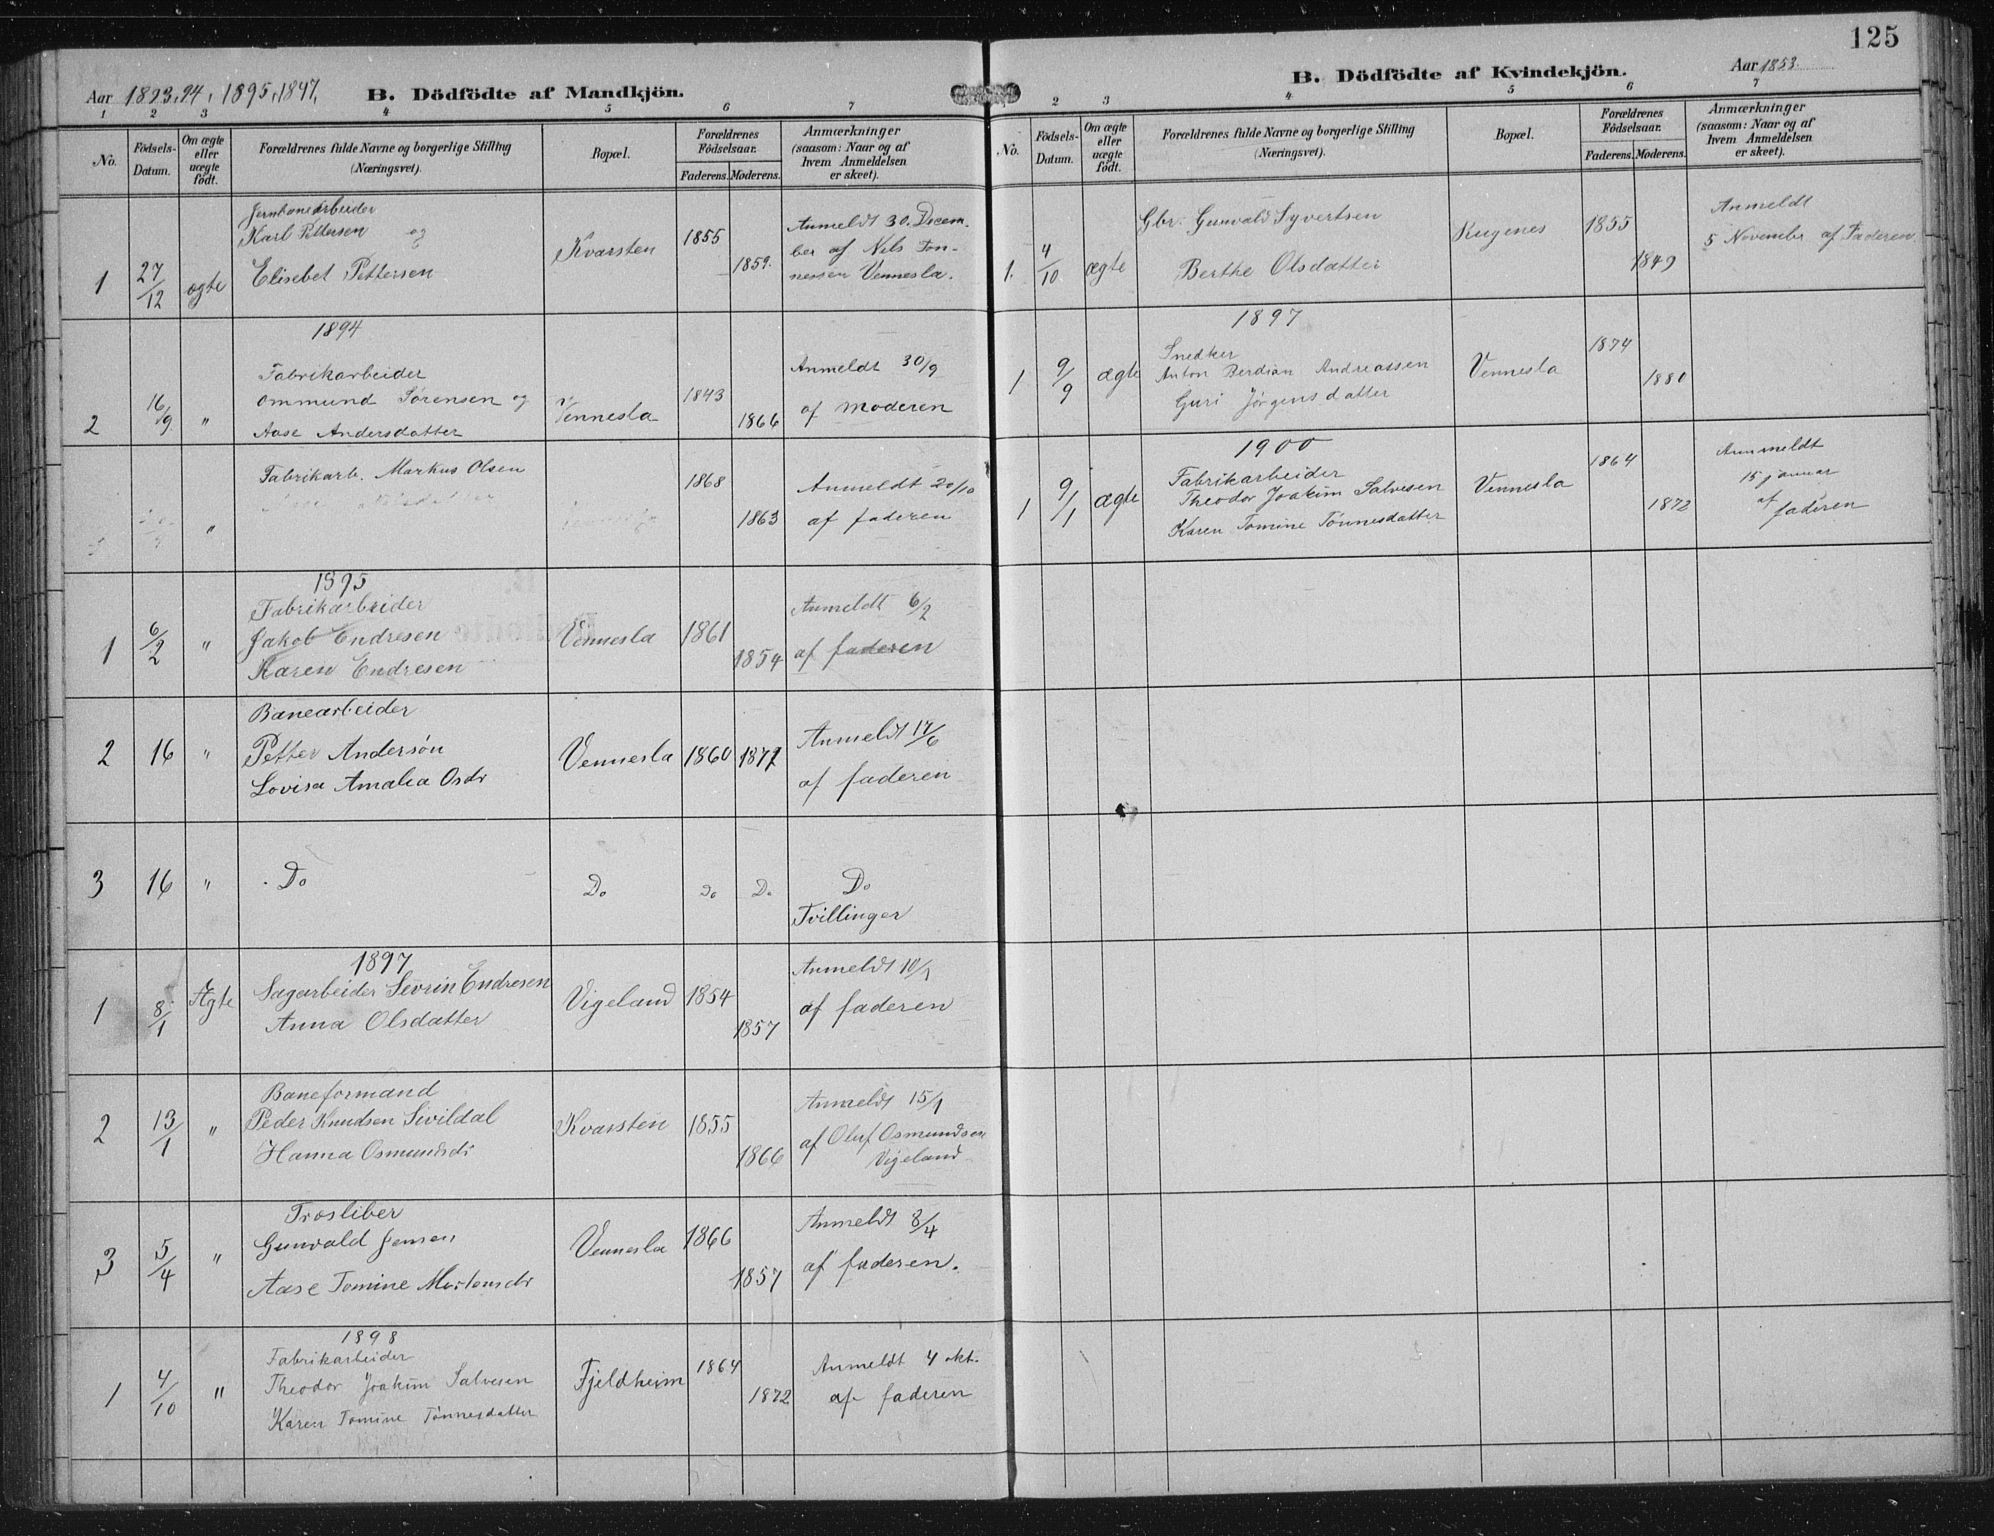 125
Aar 1893, 94, 1895, 1897,
B. Dödfödte af Mandkjön.
1 2 3 4 5 6 7
No.
Födsels-Datum.
Om ægte eller uægte födt.
Forældrenes fulde Navne og borgerlige Stilling (Næringsvei).
Bopæl.
Forældrenes Födselsaar.
Faderens. Moderens.
Anmærkninger (saasom: Naar og af hvem Anmeldelsen er skeet).
Jernbanearbeider
Karl Pettersen og
Elisebet Pettersen
1 27/12 ægte Kvarsten 1855 1859.
Anmeldt 30. Decem-
ber af Nils Ton-
nessen Vennesla.
1894
Fabrikarbeider
Ommund Sørensen og
Aase Andersdatter
2 16/9 " Vennesla 1843 1866
Anmeldt 30/9
af moderen
Fabrikarb. Markus Olsen
" 1868 1863
Anmeldt 20/10
af faderen
1895
Fabrikarbeider
Jakob Endresen
Karen Endresen
1 6/2 " Vennesla 1861 1854
Anmeldt 6/2
af faderen
Banearbeider
Petter Andersøn
Lovisa Amalia Osdr
2 16 " Vennesla 1860 1872
Anmeldt 17/6
af faderen
3 16 " Do Do Do Do Do
Tvillinger
1897
Sagarbeider Sevrin Endresen
Anna Olsdatter
1 8/1 Ægte Vigeland 1854 1857
Anmeldt 10/1
af faderen
Baneformand
Peder Knudsen Sivildal
Hanna Osmundsdr
2 13/1 " Kvarsten 1855 1866
Anmeldt 15/1
af Oluf Osmundsen
Vigeland
Træsliber
Gunvald Jensen
Aase Tomine Mortensdr
3 5/4 " Vennesla 1866 1857
Anmeldt 8/4
af faderen.
1898
Fabrikarbeider
Theodor Joakim Salvesen
Karen Tomine Tønnesdatter
1 4/10 " Fjeldheim 1864 1872
Anmeldt 4 okt.
af faderen
B. Dödfödte af Kvindekjön.
Aar 1853.
2 3 4 5 6 7
No.
Födsels-Datum.
Om ægte eller uægte födt.
Forældrenes fulde Navne og borgerlige Stilling (Næringsvei).
Bopæl.
Forældrenes Födselsaar.
Faderens. Moderens.
Anmærkninger (saasom: Naar og af hvem Anmeldelsen er skeet).
Gbr. Gunvald Syvertsen
Berthe Olsdatter
1. 4/10 ægte Rugenes 1855 1849
Anmeldt
5 November af Faderen.
1897
Snedker
Anton Berdian Andreassen
Guri Jørgensdatter
1 9/9 ægte Vennesla 1874 1880
1900
Fabrikarbeider
Theodor Joakim Salvesen
Karen Tomine Tønnesdatter
1 9/1 ægte Vennesla 1864 1872
Anmeldt
15 januar
af
faderen